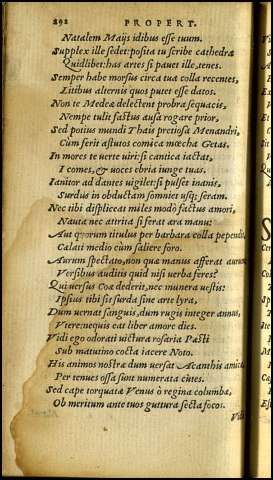 292 PROPERT.
Natalem Maijs idibus esse tuum.
Supplex ille sedet: posita tu scribe cathedra
Quidlibet: has artes si pauet ille, tenes.
Semper habe morsus circa tua colla recentes,
Litibus alternis quos putet esse datos.
Non te Medeæ delectent probra sequacis,
Nempe tulit fastus ausa rogare prior,
Sed potius mundi Thais pretiosa Menandri,
Cum ferit astutos comica mœcha Getas.
In mores te uerte uiri: si cantica iactat,
I comes, & uoces ebria iunge tuas.
Ianitor ad dantes uigilet: si pulset inanis,
Surdus in obductam somniet usq; seram.
Nec tibi displiceat miles modò factus amori,
Nauta nec attrita si ferat æra manu:
Aut quorum titulus per barbara colla pependit,
Calati medio cùm saliere foro.
Aurum spectato, non quæ manus afferat aurum
Versibus auditis quid nisi uerba feres?
Qui uersus Coæ dederit, nec munera uestis:
Ipsius tibi sit surda sine arte lyra,
Dum uernat sanguis, dum rugis integer annus,
Vtere: nequis eat liber amore dies.
Vidi ego odorati uictura rosaria Pæsti
Sub matutino cocta iacere Noto.
His animos nostræ dum uersat Acanthis amicæ
Per tenues ossa sunt numerata cutes.
Sed cape torquatæ Venus ò regina columbæ,
Ob meritum ante tuos guttura secta focos.